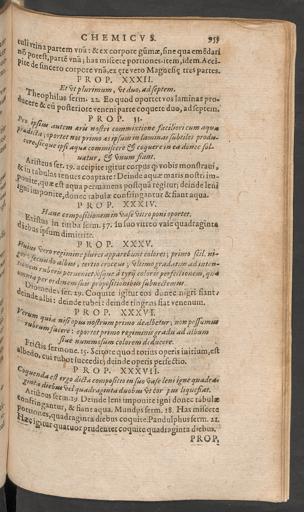 CHEMICVS. 959
culi vrina partem vnã: & ex corpore gũmæ, sine qua emẽdari
nõ potest, partẽ vnã: has miscete portiones. item, idem. Acci-
pite de sincero corpore vnã, ex ęre vero Magnesię tres partes.
PROP. XXXII.
Et vt plurimum, vt duo, ad septem.
Theophilus serm. 22. Eo quod oportet vos laminas pro-
ducere & eũ posteriore veneni parte coquete duo, ad septem.
PROP. 33.
sius autem aris nostri commixtione facilior cum aqua
prædicta, oportet nos primo as ipsum in laminas subtiles produ-
cere, sicque ipsi aqua commiscere & coquere in ea donec sol-
uatur, & vnum fiant.
Aristeus ser. 19. accipite igitur corpus ꝗ vobis monstraui,
& in tabulas tenues coaptate: Deinde aquæ maris nostri im-
ponite, quæ est aqua permanens postquã regitur: deinde leni
igni imponite, donec tabulæ confringantur & fiant aqua.
PROP. XXXIV.
Hanc compositionem in vase vitreo poni oportet.
Eristus in turba serm. 57. In suo vitreo vase quadraginta
diebus ipsum dimittite.
PROP. XXXV.
Huius vero regimine plures apparebunt colores; primo scil. ni-
omnia per ordinem suis propositionibus subnectemus.
Diomedes ser. 29. Coquite igitur eos donec nigri fiant,
deinde albi: deinde rubei: deinde tingens fiat venenum.
PROP. XXXVI.
Verum quia nisi opus nostrum primo dealbetur, non possumus
rubrum facere: oportet primo regiminis gradu ad album
siue nummosum colorem deducere.
Frictis sermone. 15. Scitote quod totius operis initium, est
albedo, cui rubor succedit; dein de operis perfectio.
PROP. XXXVII.
Coquenda est ergo dicta compositio in suo vase leni igne quadra-
ginta diebus vel quadraginta duobus vt cor pus liquescat.
Aristeus serm. 19. Deinde leni imponite igni donec tabulæ
confringantur, & fiant aqua. Mundus serm. 18. Has miscete
portiones, quadraginta diebus coquite. Pandulphus serm. 21.
Hæc igitur quatuor prudenter coquite quadraginta diebus.
PROP.